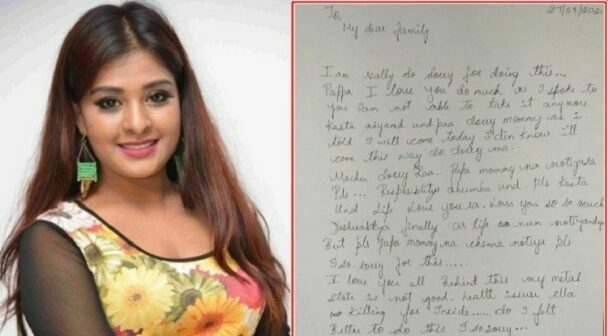 To,
27/09/2021
My dear family
I am really so sorry for doing this...
Pappa I love you so much as I spoke to
you I am not able to take it anymore
Kasta aiyand unpaa sorry mommy as i
told I will come today I din know i'll
come this way so sorry ma.
Machu Sorry Kaa.. Papa mommy na notiyala
Pls... Responsibiltye dhumba und Pls kasta
Und life love you sa. Love you so so much
finally ur life nun notiyandap
But pls Papa mommy na chenna notiya pls
I so sorry for this....
I love you all Behind this my metal
state is not good. health issuse ella
Killing for Inside..... so I felt
Better to do this I so sorry...